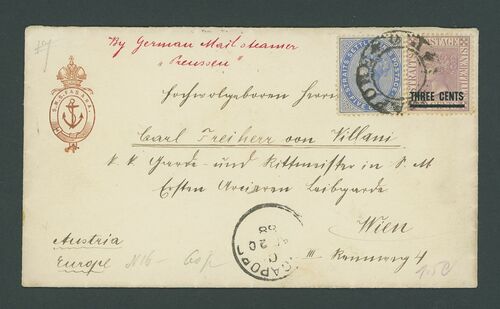 By German Mail steamer
"Preussen"
S.M.S. FASANA.
STRAITS SETTLEMENTS POSTAGE
POSTAGE
THREE CENTS
Hochwolgeboren Herrn
Carl Freiherr von Villani
k. k. Garde- und Rittmeister in S. M
Ersten Arcieren Leibgarde
Wien
III. Rennweg 4
Austria
Europe
SINGAPORE